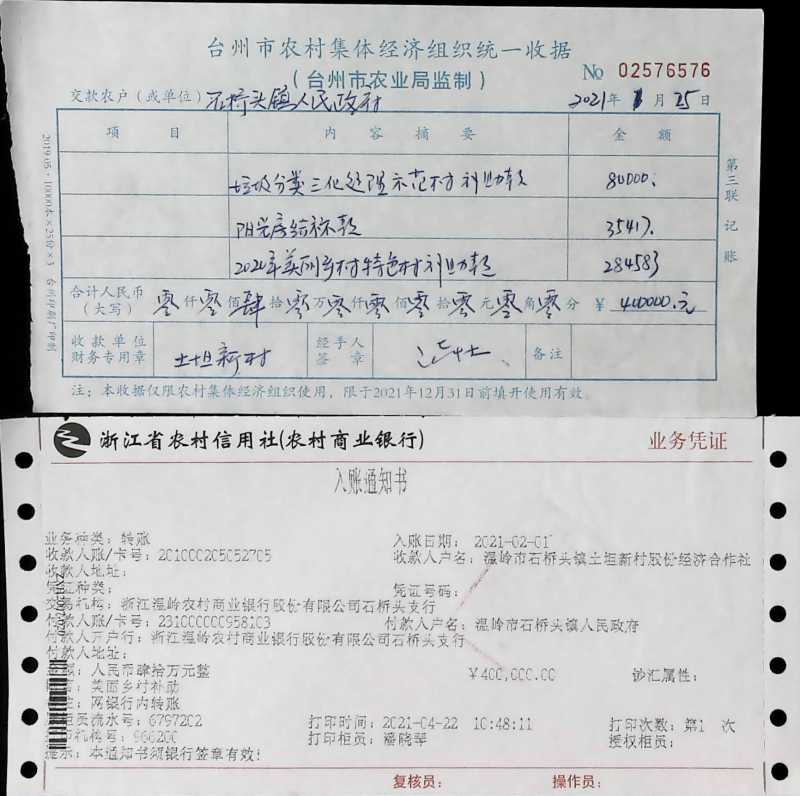 台州市农村集体经济组织统一收据
(台州市农业局监制)
No 02576576
交款农户（或单位）石桥头镇人民政府 2021年 1月 25日
项 目 内 容 摘 要 金 额
垃圾分类三化处理示范村 补助款 80000.
阳光房结标款 35417.
2020年美丽乡村特色村补助款 284583
合计人民币（大写） 零仟零佰肆拾零万零仟零佰零拾零元零角零分 ￥ 400000.元
收款单位财务专用章 土坦新村 经手人签章 备注
注：本收据仅限农村集体经济组织使用，限于2021年12月31日前填开使用有效。
第三联 记账
浙江省农村信用社(农村商业银行) 业务凭证
入账通知书
业务种类：转账 入账日期： 2021-02-01
收款人账/卡号：201000205052705 收款人户名：温岭市石桥头镇土坦新村股份经济合作社
收款人地址：
凭证种类： 凭证号码：
交易机构：浙江温岭农村商业银行股份有限公司石桥头支行
付款人账/卡号：231000000958103 付款人户名：温岭市石桥头镇人民政府
付款人开户行：浙江温岭农村商业银行股份有限公司石桥头支行
付款人地址：
金额：人民币肆拾万元整 ￥400,000.00 钞汇属性：
美丽乡村补助
网银行内转账
柜员流水号：6797202 打印时间：2021-04-22 10:48:11 打印次数：第1 次
机构号：966200 打印柜员：潘晓琴 授权柜员：
提示：本通知书须银行签章有效!
复核员： 操作员：